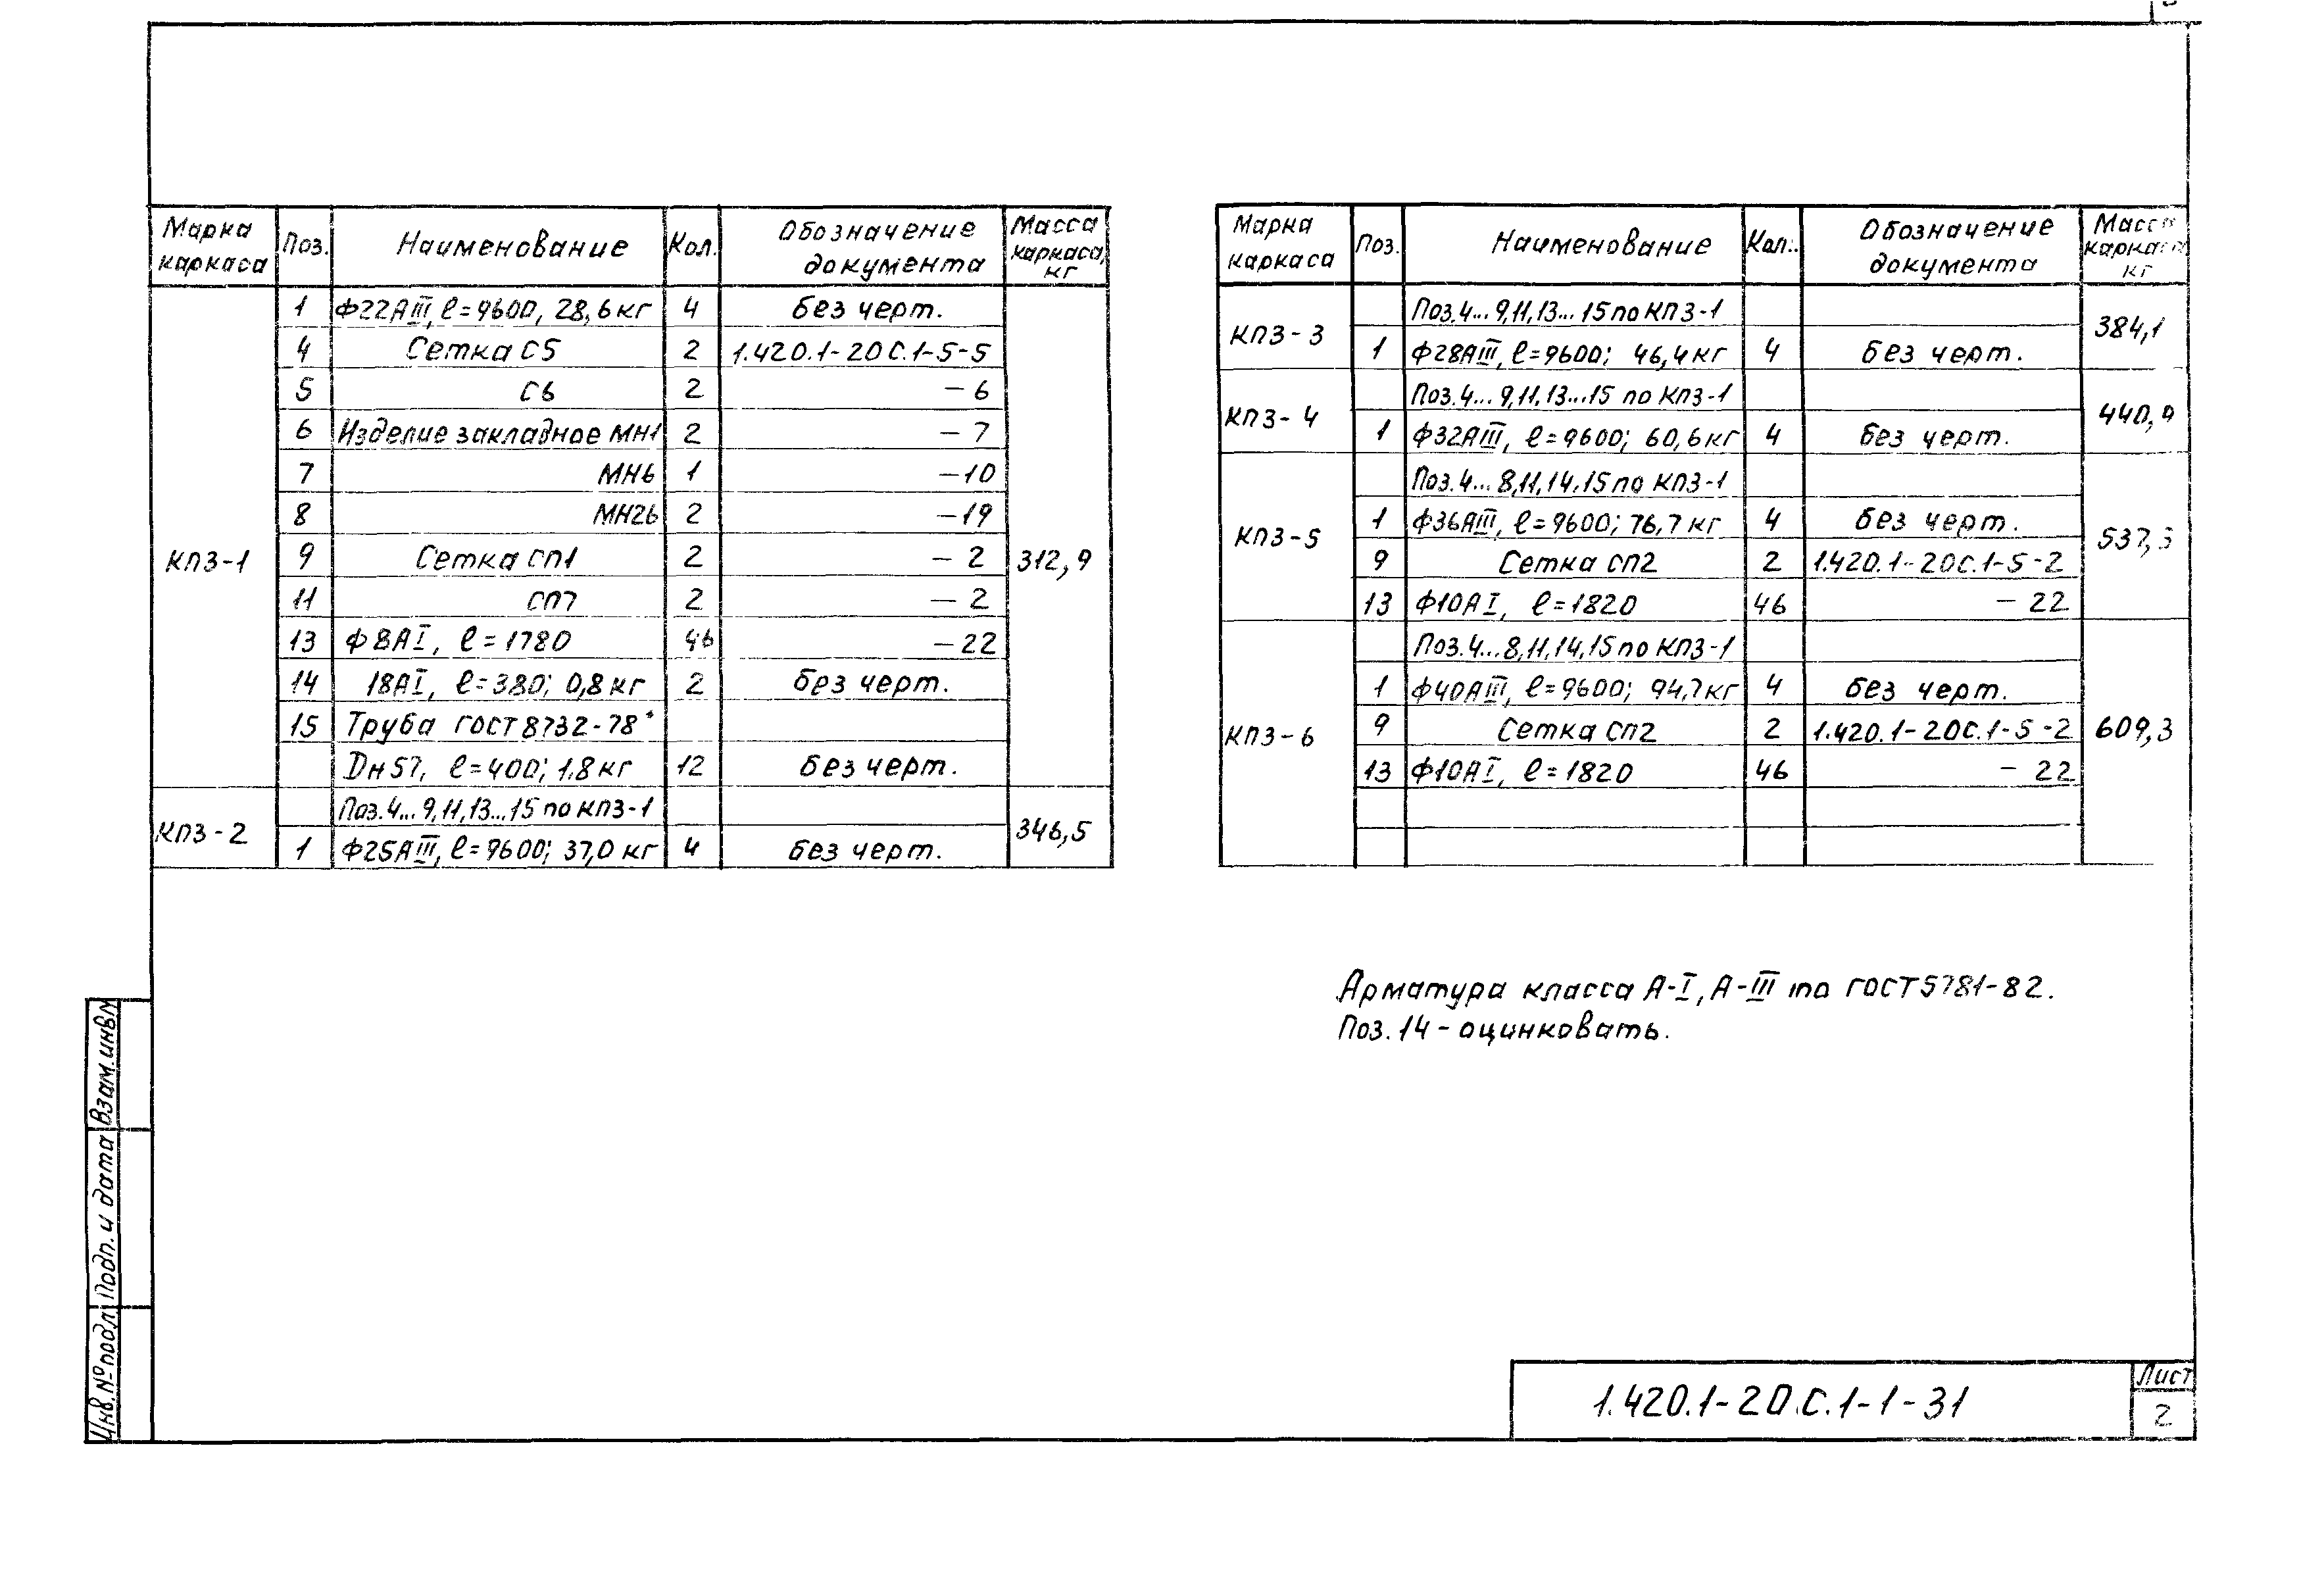 Марка каркаса Поз. Наименование Кол. Обозначение документа Масса каркаса, кг
КП3-1 312,9
1 Ф22АIII, ℓ=9600, 28,6кг 4 без черт.
4 Сетка С5 2 1.420.1-20С.1-5-5
5 С6 2 -6
6 Изделие закладное МН1 2 -7
7 МН6 1 -10
8 МН26 2 -19
9 Сетка СП1 2 -2
11 СП7 2 -2
13 Ф8АI, ℓ=1780 46 -22
14 18АI, ℓ=380; 0,8кг 2 без черт.
15 Труба ГОСТ 8732-78*
Dн57, ℓ=400; 1,8кг 12 без черт.
КП3-2 346,5
Поз.4...9,11,13...15 по КП3-1
1 Ф25АIII, ℓ=9600; 37,0 кг 4 без черт.
Марка каркаса Поз. Наименование Кол. Обозначение документа Масса каркаса кг
КП3-3 384,1
Поз.4...9,11,13...15 по КП3-1
1 Ф28АIII, ℓ=9600; 46,4кг 4 без черт.
КП3-4 440,9
Поз.4...9,11,13...15 по КП3-1
1 Ф32АIII, ℓ=9600; 60,6кг 4 без черт.
КП3-5
Поз.4...8,11,14,15 по КП3-1
1 Ф36АIII, ℓ=9600; 76,7кг 4 без черт.
9 Сетка СП2 2 1.420.1-20С.1-5-2
13 Ф10АI, ℓ=1820 46 -22
КП3-6 609,3
Поз.4...8,11,14,15 по КП3-1
1 Ф40АIII, ℓ=9600; 94,7кг 4 без черт.
9 Сетка СП2 2 1.420.1-20С.1-5-2
13 Ф10АI, ℓ=1820 46 -22
Арматура класса А-I, А-III по ГОСТ 5781-82.
Поз.14-оцинковать.
Инв.№подл. Подп. и дата Взам.инв.№
1.420.1-20.С.1-1-31
Лист
2